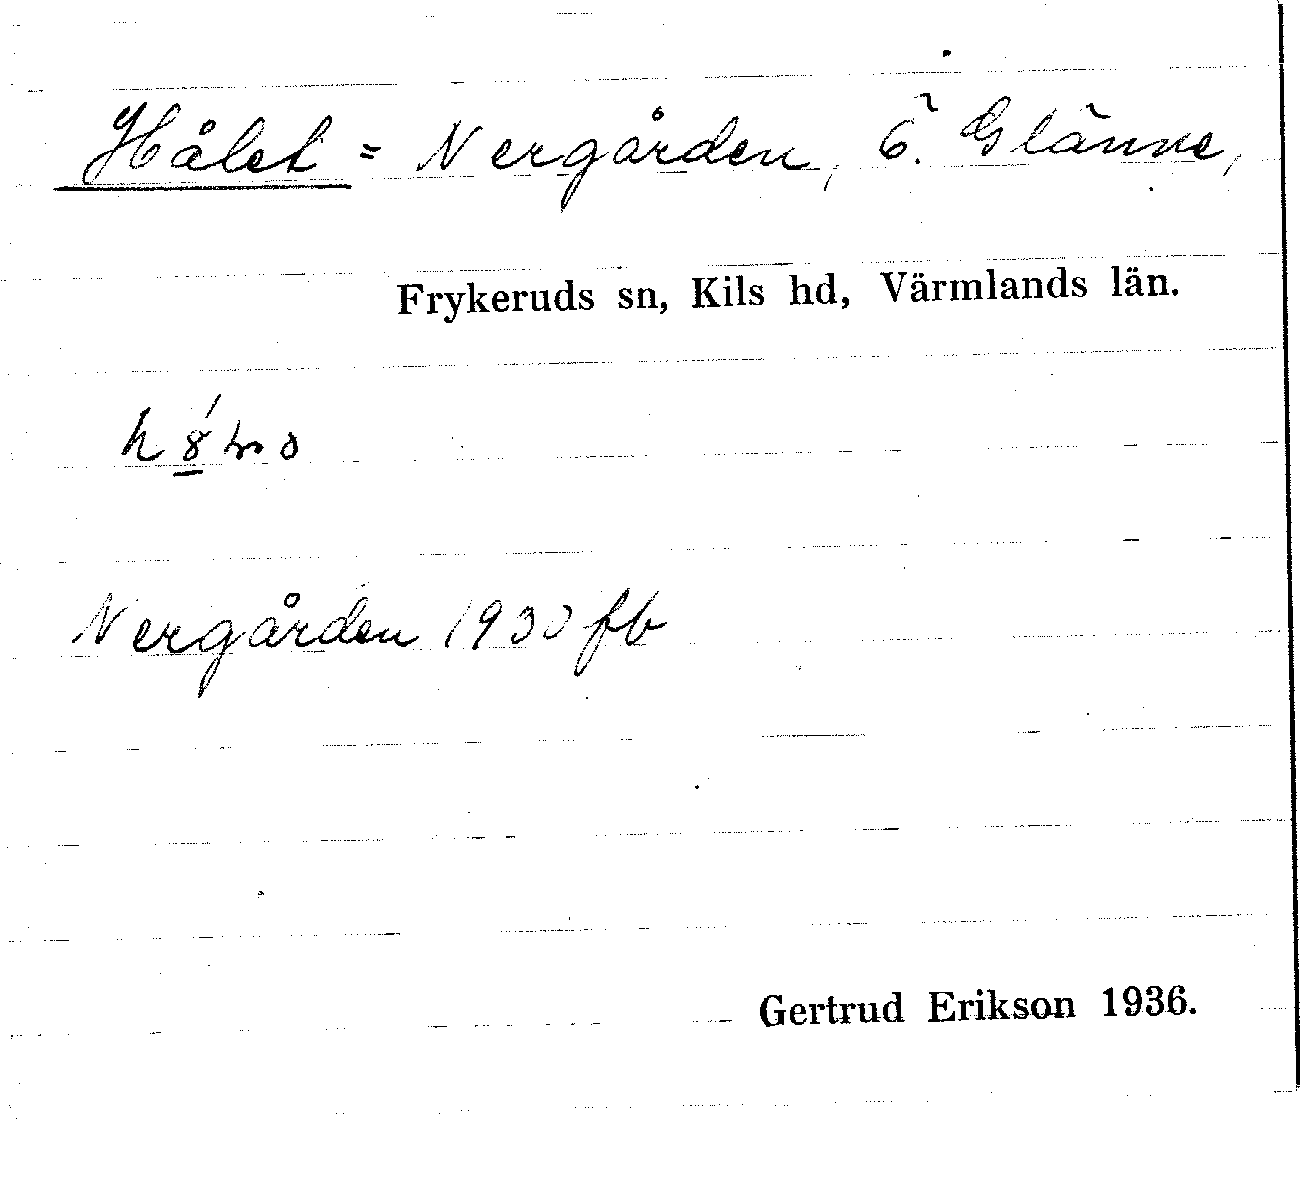 Hålet = Nergården, 6. Glänne,
Frykeruds sn, Kils hd, Värmlands län.
Nergården 1930 fb
Gertrud Erikson 1936.